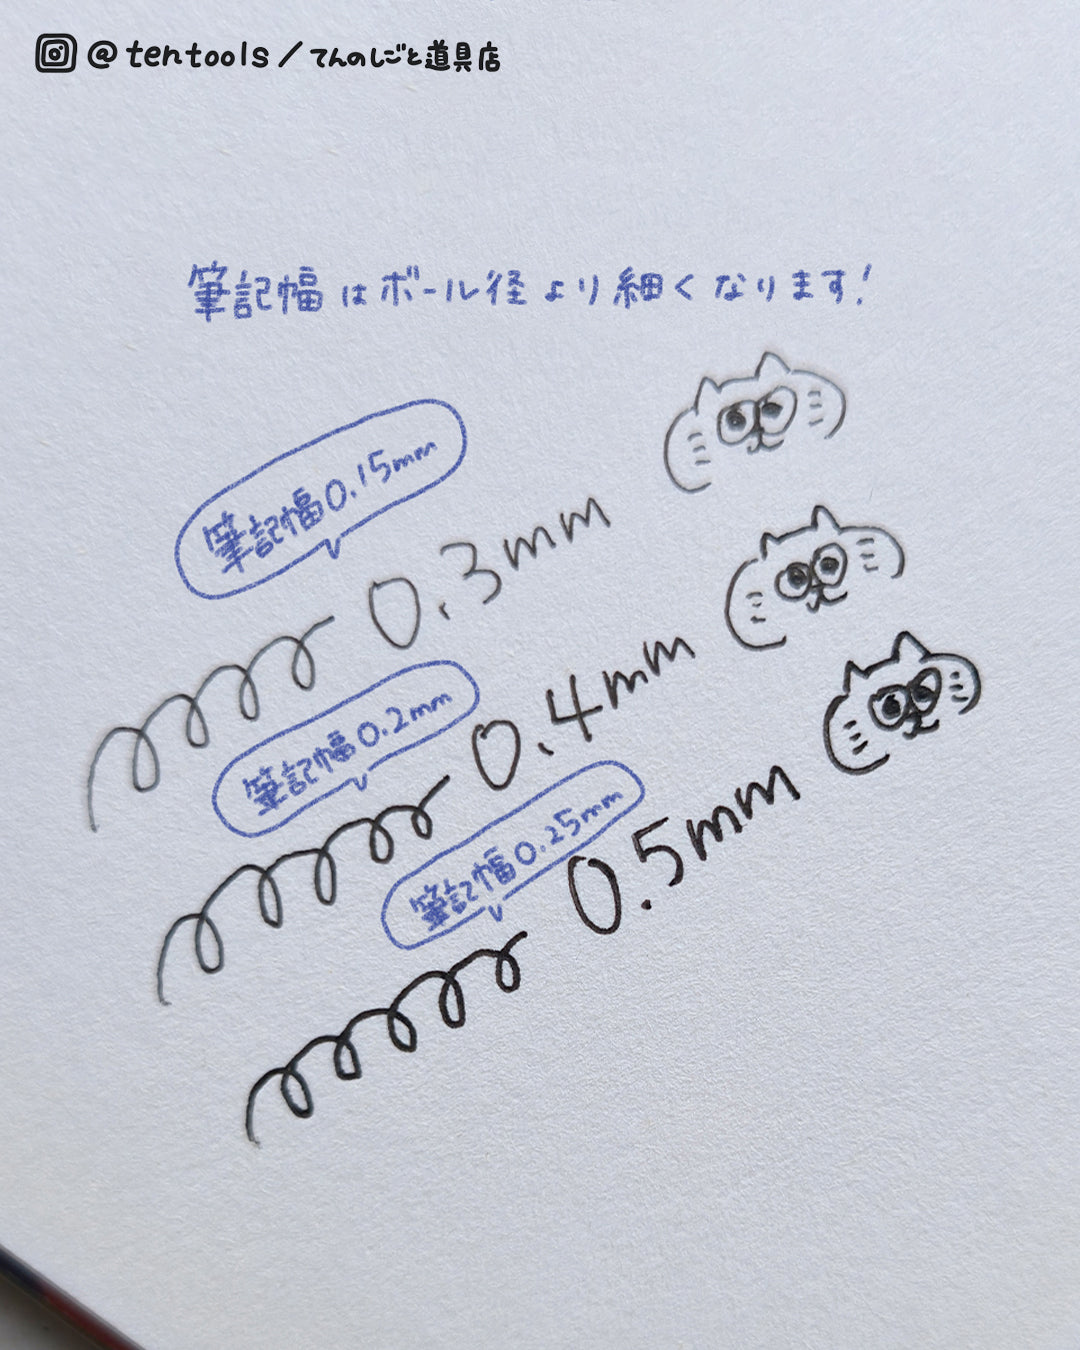 @tentools/てんのしごと道具店
筆記幅はボール径より細くなります!
筆記幅0.15mm
0.3mm
筆記幅0.2mm
0.4mm
筆記幅0.25mm
0.5mm